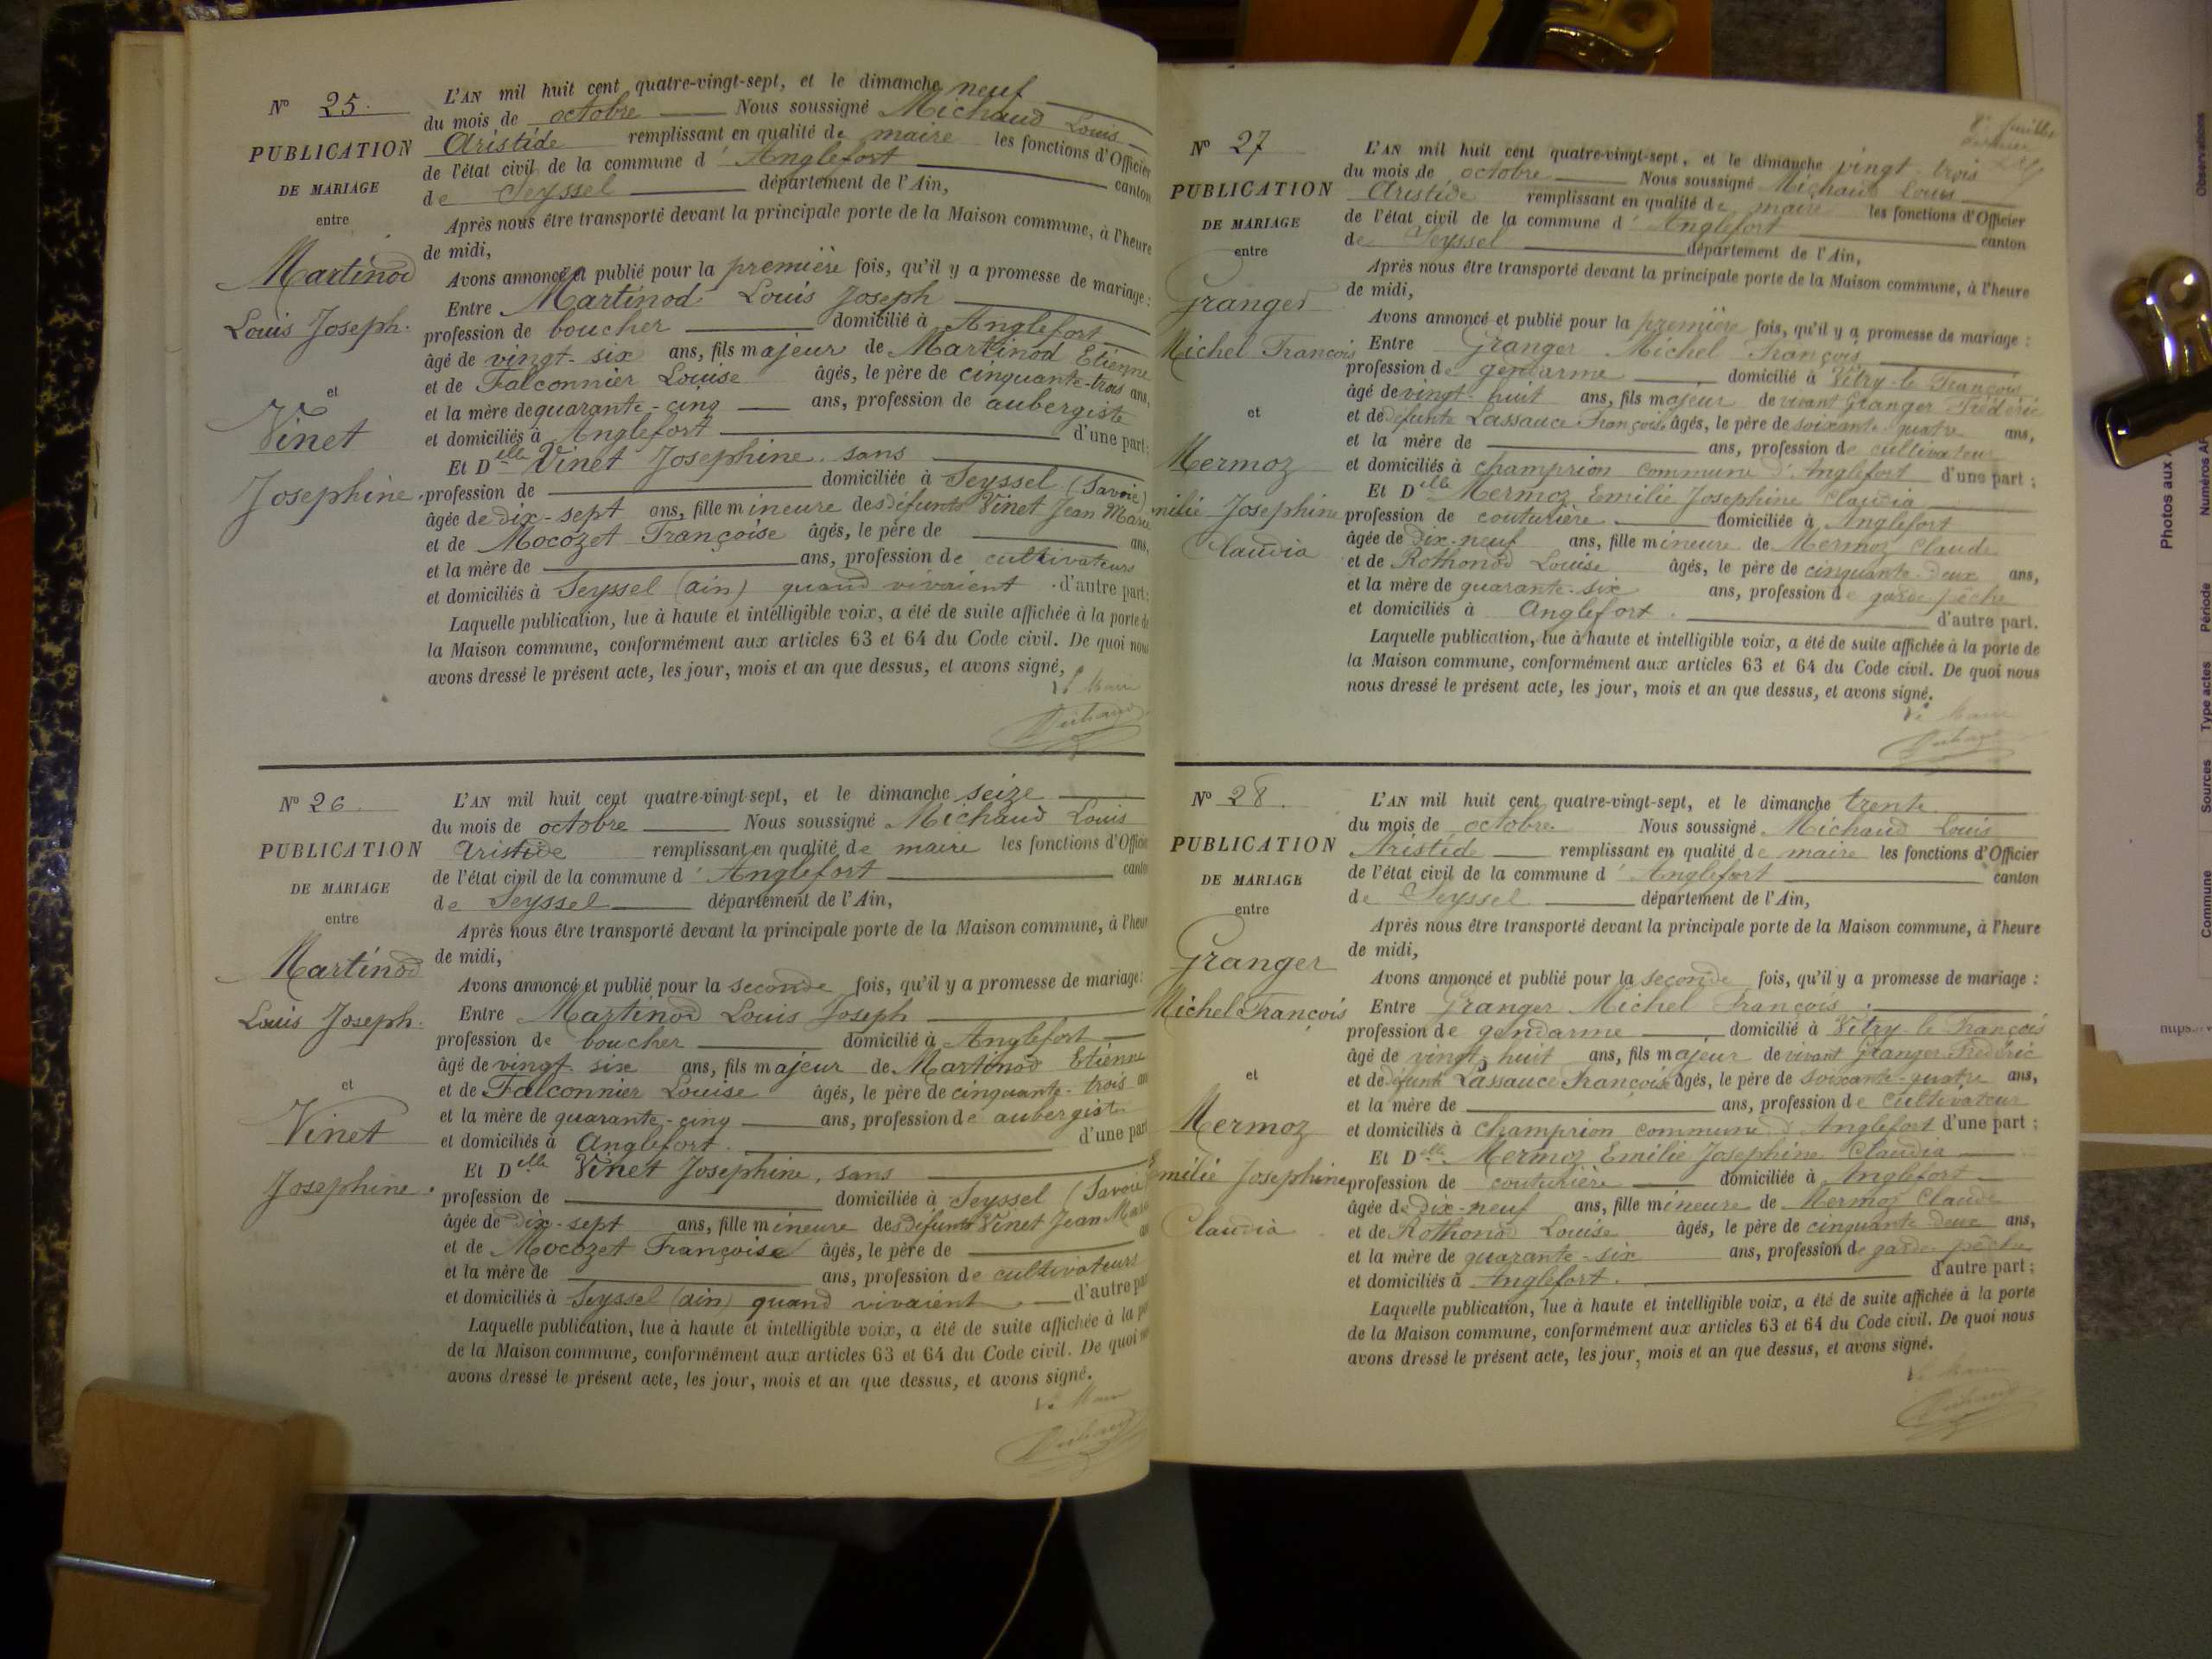 N° 25.
PUBLICATION
DE MARIAGE
entre
Martinod
Louis Joseph.
et
Vinet
Josephine.
L'AN mil huit cent quatre-vingt-sept, et le dimanche neuf
du mois de octobre Nous soussigné Michaud Louis
Aristide remplissant en qualité de maire les fonctions d'Officier
de l'état civil de la commune d' Anglefort canton
de Seyssel département de l'Ain,
Après nous être transporté devant la principale porte de la Maison commune, à l'heure
de midi,
Avons annoncé et publié pour la première fois, qu'il y a promesse de mariage :
Entre Martinod Louis Joseph
profession de boucher domicilié à Anglefort
âgé de vingt-six ans, fils majeur de Martinod Etienne
et de Falconnier Louise âgés, le père de cinquante-trois ans,
et la mère de quarante-cinq ans, profession de aubergiste
et domiciliés à Anglefort d'une part;
Et Delle Vinet Josephine, sans
profession de domiciliée à Seyssel (Savoie)
âgée de dix-sept ans, fille mineure des défunts Vinet Jean Marie
et de Mocozet Françoise âgés, le père de ans,
et la mère de ans, profession de cultivateurs
et domiciliés à Seyssel (ain) quand vivaient . d'autre part;
Laquelle publication, lue à haute et intelligible voix, a été de suite affichée à la porte de
la Maison commune, conformément aux articles 63 et 64 du Code civil. De quoi nous
avons dressé le présent acte, les jour, mois et an que dessus, et avons signé,
Le Maire
Michaud
N° 26.
PUBLICATION
DE MARIAGE
entre
Martinod
Louis Joseph.
et
Vinet
Josephine.
L'AN mil huit cent quatre-vingt-sept, et le dimanche seize
du mois de octobre Nous soussigné Michaud Louis
Aristide remplissant en qualité de maire les fonctions d'Officie
de l'état civil de la commune d' Anglefort canto
de Seyssel département de l'Ain,
Après nous être transporté devant la principale porte de la Maison commune, à l'heur
de midi,
Avons annoncé et publié pour la seconde fois, qu'il y a promesse de mariage:
Entre Martinod Louis Joseph
profession de boucher domicilié à Anglefort
âgé de vingt six ans, fils majeur de Martinod Etienne
et de Falconnier Louise âgés, le père de cinquante-trois an
et la mère de quarante-cinq ans, profession de aubergiste
et domiciliés à Anglefort. d'une part
Et Delle Vinet Josephine, sans
profession de domiciliée à Seyssel (Savoie
âgée de dix-sept ans, fille mineure des défunts Vinet Jean Marie
et de Mocozet Françoise âgés, le père de an
et la mère de ans, profession de cultivateurs
et domiciliés à Seyssel (ain) quand vivaient d'autre par
Laquelle publication, lue à haute et intelligible voix, a été de suite affichée à la po
de la Maison commune, conformément aux articles 63 et 64 du Code civil. De quoi no
avons dressé le présent acte, les jour, mois et an que dessus, et avons signé.
Le Maire
Michaud
N° 27
PUBLICATION
DE MARIAGE
entre
Granger
Michel François
et
Mermoz
milie Josephine
Claudia
L'AN mil huit cent quatre-vingt-sept, et le dimanche vingt-trois
du mois de octobre Nous soussigné Michaud Louis
Aristide remplissant en qualité de maire les fonctions d'Officier
de l'état civil de la commune d' Anglefort canton
de Seyssel département de l'Ain,
Après nous être transporté devant la principale porte de la Maison commune, à l'heure
de midi,
Avons annoncé et publié pour la première fois, qu'il y a promesse de mariage :
Entre Granger Michel François
profession de gendarme domicilié à Vitry-le François
âgé de vingt-huit ans, fils majeur de vivant Granger Frédéric
et de défunte Lassauce Françoise âgés, le père de soixante-quatre ans,
et la mère de ans, profession de cultivateur
et domiciliés à champrion commune d'Anglefort d'une part ;
Et Delle Mermoz Emilie Josephine Claudia
profession de couturière domiciliée à Anglefort
âgée de dix-neuf ans, fille mineure de Mermoz Claude
et de Rothonod Louise âgés, le père de cinquante-deux ans,
et la mère de quarante-six ans, profession de garde pêche
et domiciliés à Anglefort. d'autre part.
Laquelle publication, lue à haute et intelligible voix, a été de suite affichée à la porte de
la Maison commune, conformément aux articles 63 et 64 du Code civil. De quoi nous
nous dressé le présent acte, les jour, mois et an que dessus, et avons signé.
Le Maire
Michaud
N° 28.
PUBLICATION
DE MARIAGE
entre
Granger
Michel François
et
Mermoz
Emilie Josephine
Claudia
L'AN mil huit cent quatre-vingt-sept, et le dimanche trente
du mois de octobre Nous soussigné Michaud Louis
Aristide remplissant en qualité de maire les fonctions d'Officier
de l'état civil de la commune d' Anglefort canton
de Seyssel département de l'Ain,
Après nous être transporté devant la principale porte de la Maison commune, à l'heure
de midi,
Avons annoncé et publié pour la seconde fois, qu'il y a promesse de mariage :
Entre Granger Michel François
profession de gendarme domicilié à Vitry-le François
âgé de vingt-huit ans, fils majeur de vivant Granger Frédéric
et de défunte Lassauce Françoise âgés, le père de soixante-quatre ans,
et la mère de ans, profession de cultivateur
et domiciliés à champrion commune d'Anglefort d'une part ;
Et Delle Mermoz Emilie Josephine Claudia
profession de couturière domiciliée à Anglefort
âgée de dix-neuf ans, fille mineure de Mermoz Claude
et de Rothonod Louise âgés, le père de cinquante deux ans,
et la mère de quarante-six ans, profession de garde-pêche
et domiciliés à Anglefort. d'autre part ;
Laquelle publication, lue à haute et intelligible voix, a été de suite affichée à la porte
de la Maison commune, conformément aux articles 63 et 64 du Code civil. De quoi nous
avons dressé le présent acte, les jour, mois et an que dessus, et avons signé.
Le Maire
Michaud
Photos aux
Commune
Sources
Type actes
Période
Observations